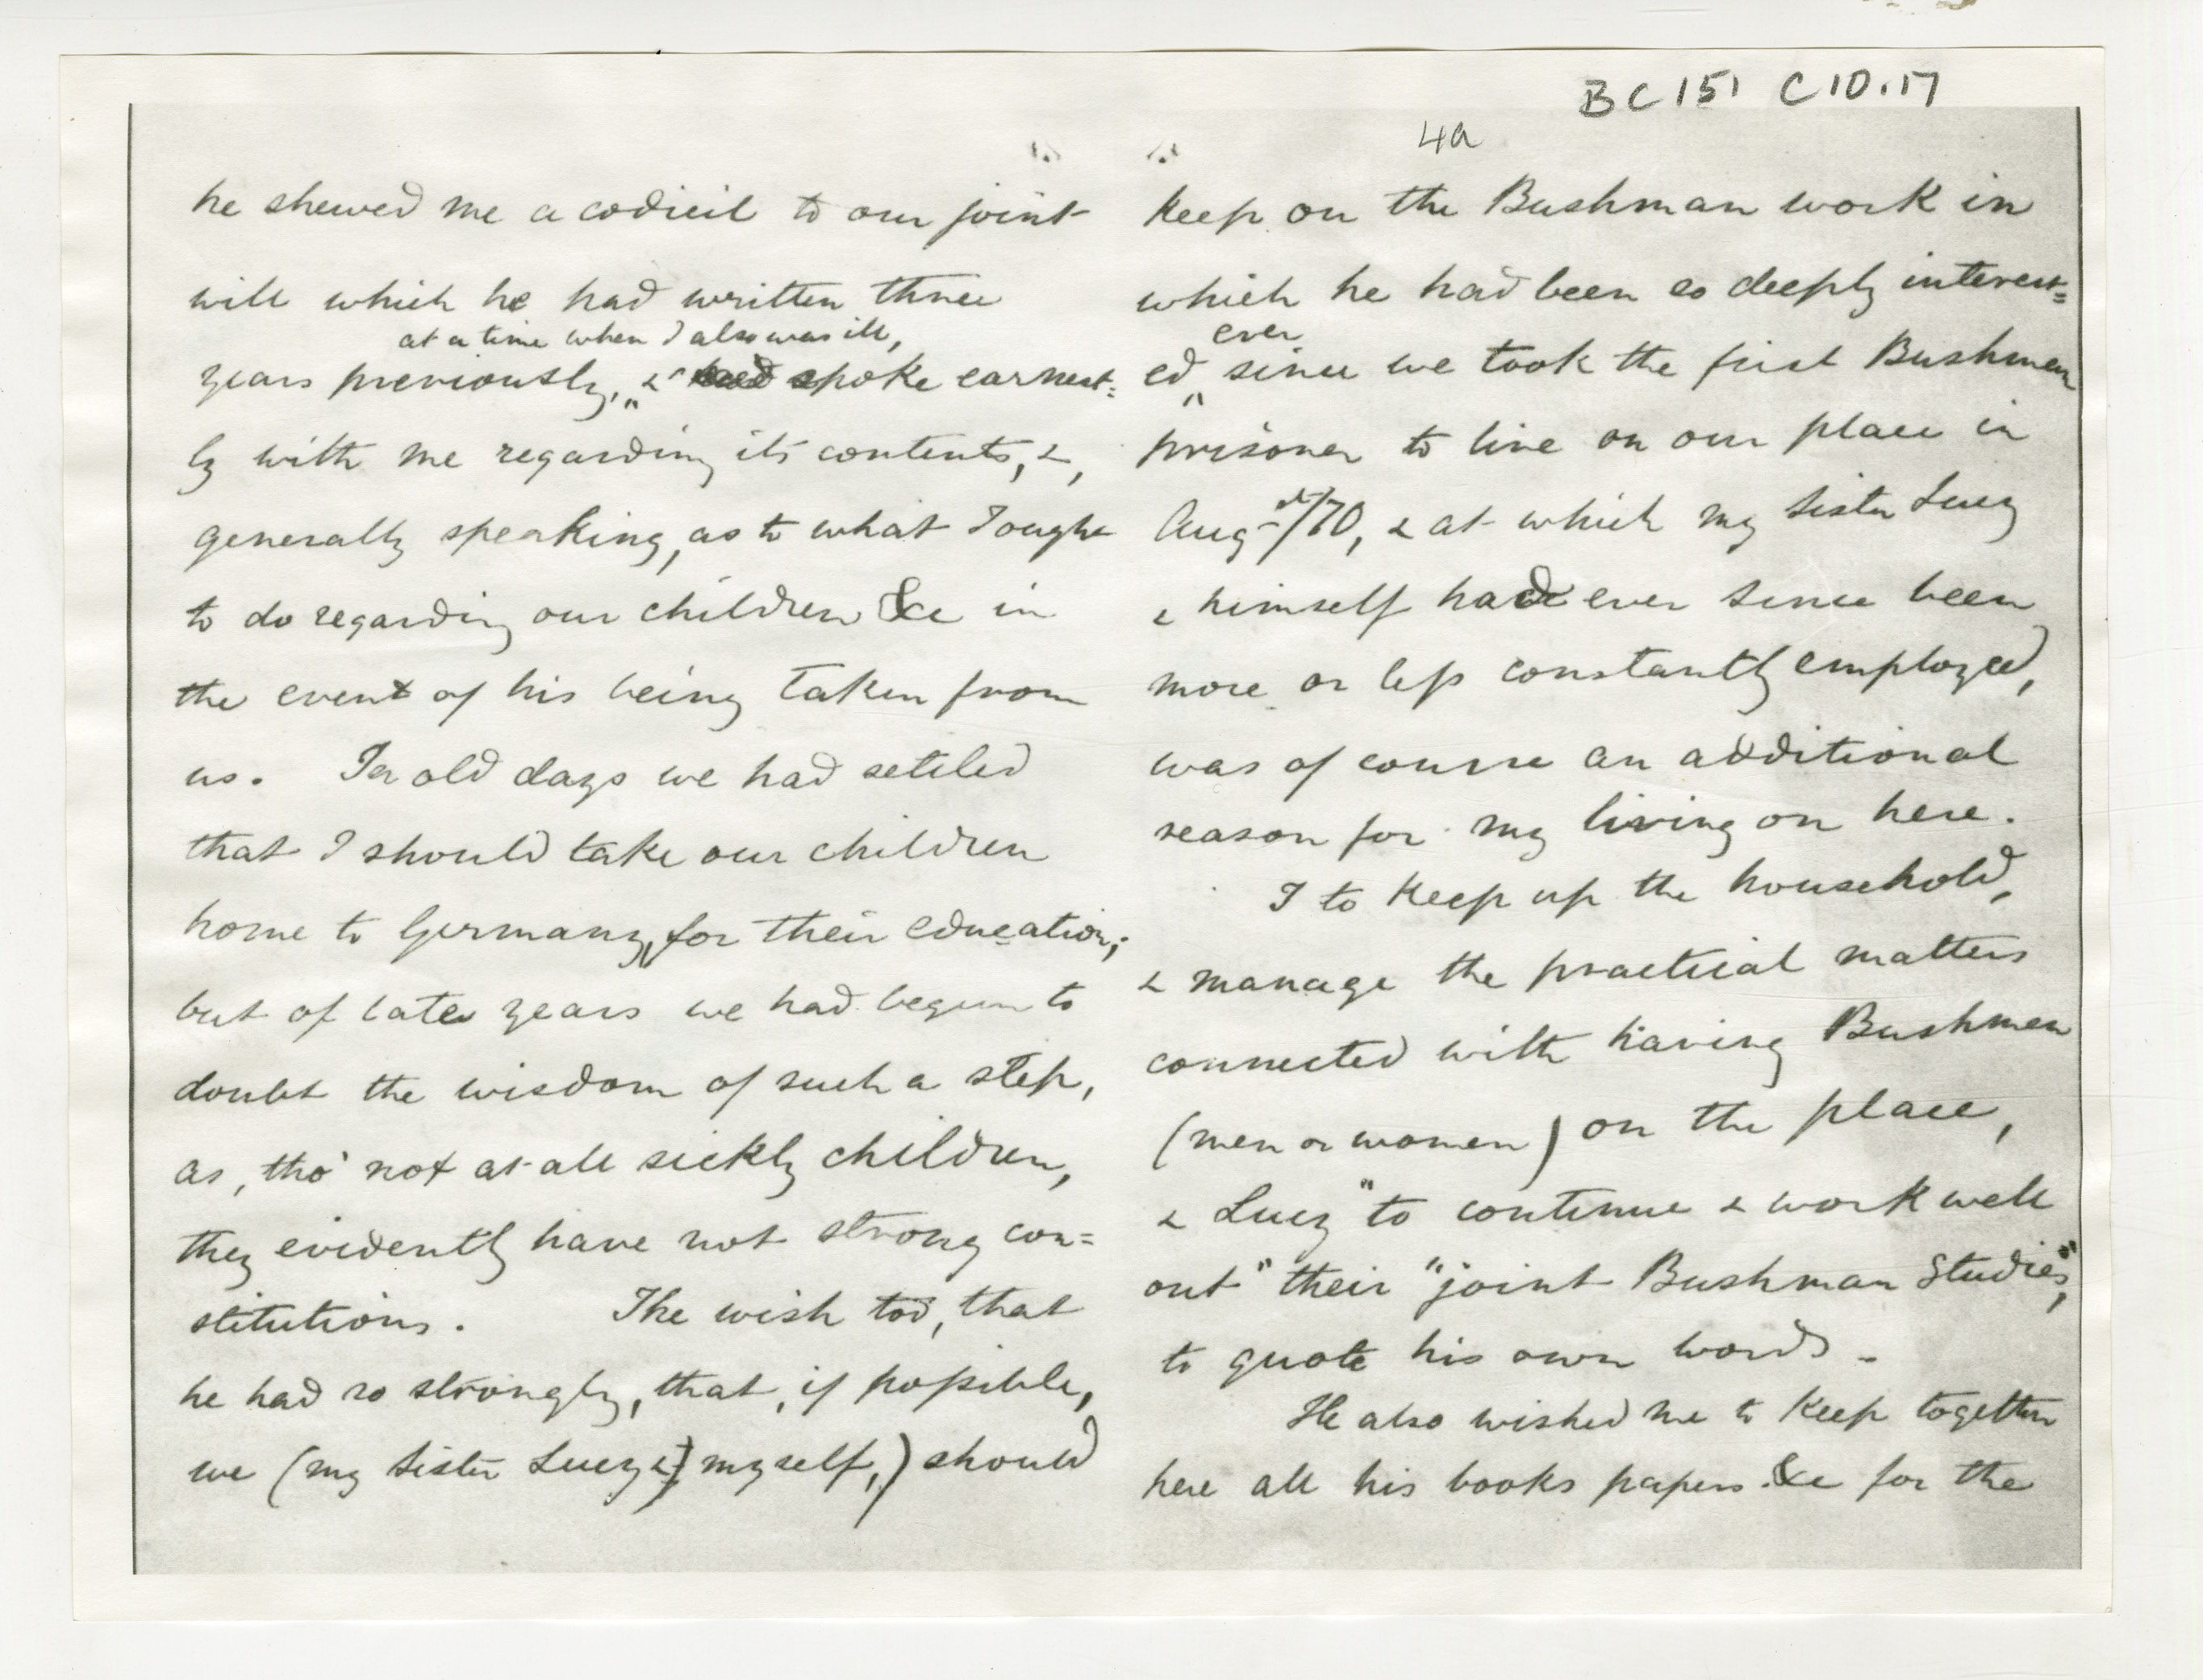 BC151 C10.17
4a
he shewed me a codicil to our joint
will which he had written three
at a time when I also was ill,
years previously, & spoke earnest=
ly with me regarding its contents, &,
generally speaking, as to what I ought
to do regarding our children &c in
the event of his being taken from
us. In old days we had settled
that I should take our children
home to Germany, for their education;
but of late years we had begun to
doubt the wisdom of such a step,
as, tho' not at all sickly children,
they evidently have not strong con=
stitutions. The wish too, that
he had so strongly, that, if possible,
we (my sister Lucy & myself,) should
keep on the Bushman work in
which he had been so deeply interest=
ever
ed since we took the first Bushman
prisoner to live on our place in
Augst/70, & at which my sister Lucy
& himself had ever since been
more or less constantly employed,
was of course an additional
reason for my living on here.
I to keep up the household,
& manage the practical matters
connected with having Bushmen
(men or women) on the place,
& Lucy "to continue & work well
out" their "joint Bushman Studies",
to quote his own words.
He also wished me to keep together
here all his books papers &c for the